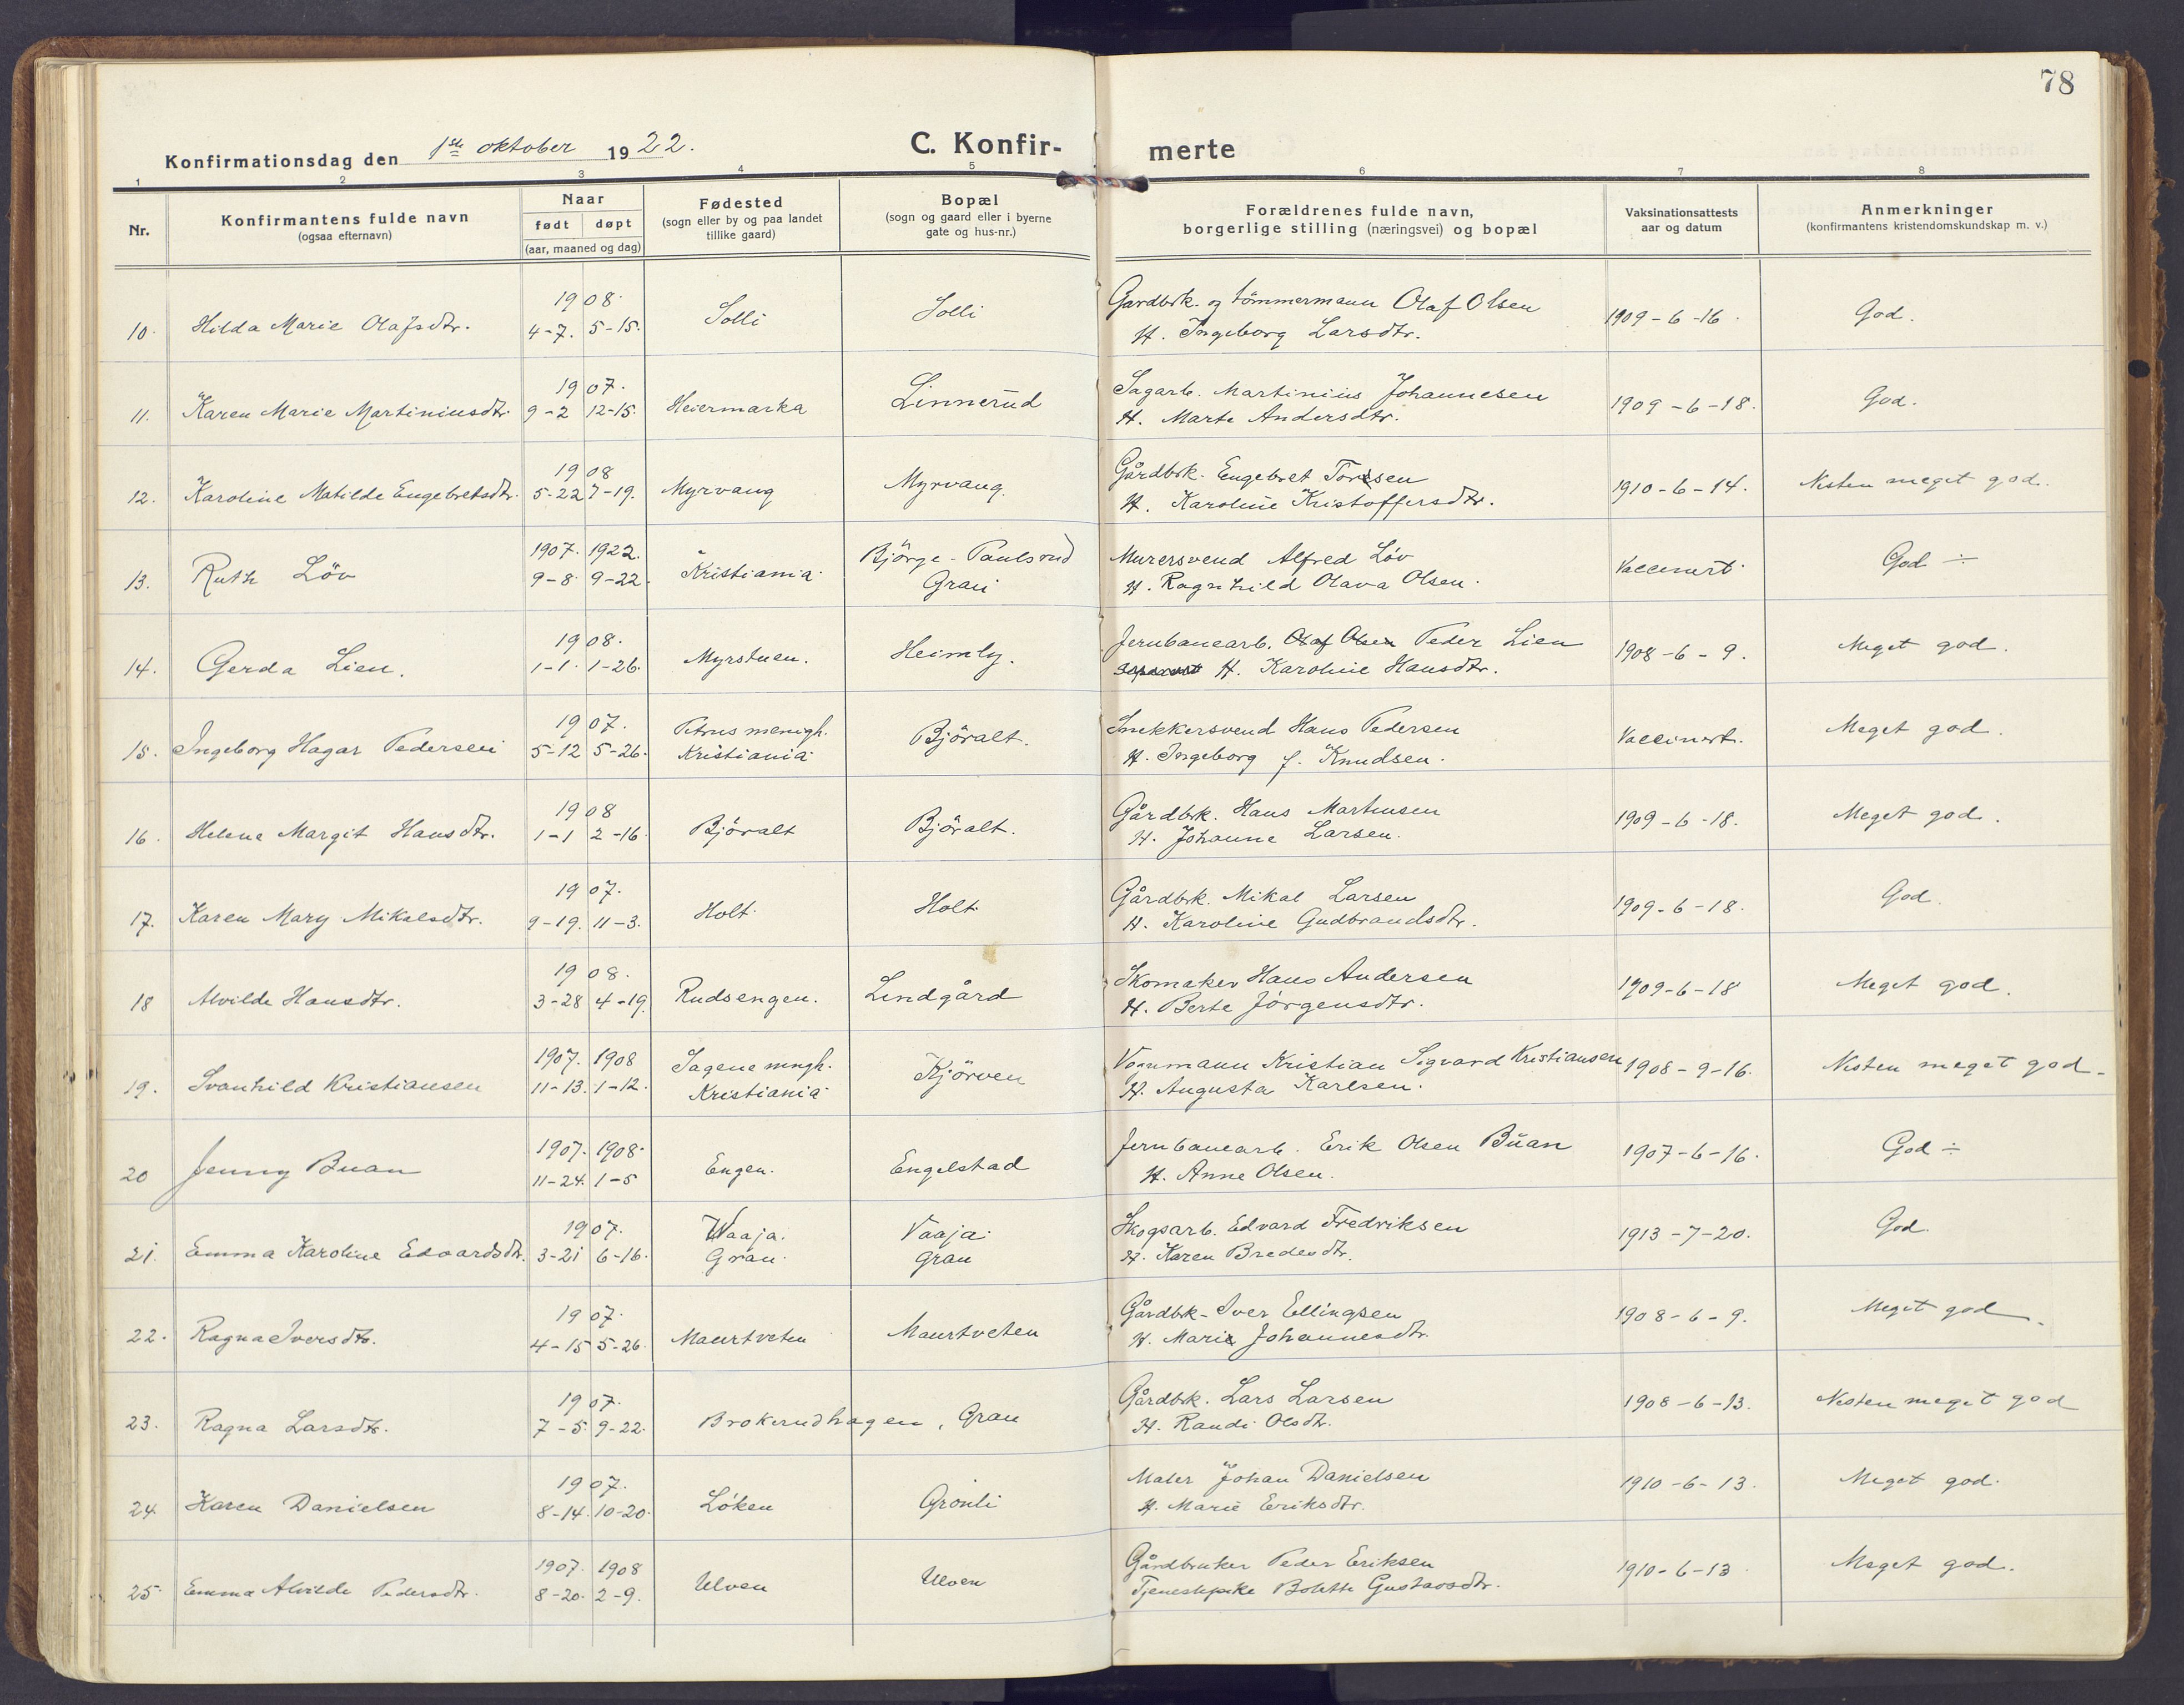 78
Konfirmationsdag den 1ste oktober 1922.
C. Konfir-merte
1 2 3 4 5 6 7 8
Nr.
Konfirmantens fulde navn
(ogsaa efternavn)
Naar
født døpt
(aar, maaned og dag)
Fødested
(sogn eller by og paa landet
tillike gaard)
Bopæl
(sogn og gaard eller i byerne
gate og hus-nr.)
Forældrenes fulde navn,
borgerlige stilling (næringsvei) og bopæl
Vaksinationsattests
aar og datum
Anmerkninger
(konfirmantens kristendomskundskap m. v.)
1908. Gardbrk. og tömmermann Olaf Olsen
10. Hilda Marie Olafsdtr. 4-7. 5-15. Solli Solli H. Ingeborg Larsdtr. 1909-6-16. God.
1907. Sagarb. Martinius Johannesen
11. Karen Marie Martiniusdtr. 9-2 12-15. Heiermarka Linnerud H. Marte Andersdtr. 1909-6-18. God.
1908 Gårdbrk. Engebret Torsen
12. Karoline Matilde Engebretsdtr. 5-22 7-19. Myrvang Myrvang. H. Karoline Kristoffersdtr. 1910-6-14. Nesten meget god.
1907. 1922. Björge-Paulsrud Murersvend Alfred Löv
13. Ruth Löv 9-8. 9-22. Kristiania. Gran H. Ragnhild Olava Olsen. Vaccinert. God ÷
1908. Jernbanearb. Olaf Olsen Peder Lien
14. Gerda Lien. 1-1. 1-26. Myrstuen. Heimly. H. Karoline Hansdtr. 1908-6-9. Meget god.
1907. Petrus menigh. Snekkersvend Hans Pedersen
15. Ingeborg Hagar Pedersen 5-12 5-26. Kristiania. Björalt. H. Ingeborg f. Knudsen. Vaccinert. Meget god.
1908 Gårdbrk. Hans Martinsen
16. Helene Margit Hansdtr. 1-1 2-16. Björalt Björalt. H. Johanne Larsen. 1909-6-18. Meget god.
1907. Gårdbrk. Mikal Larsen
17. Karen Mary Mikalsdtr. 9-19. 11-3. Holt. Holt. H. Karoline Gudbrandsdtr. 1909-6-18. God.
1908. Skomaker Hans Andersen
18 Alvilde Hansdtr. 3-28 4-19. Rudsengen. Lindgård H. Berte Jörgensdtr. 1909-6-18 Meget god.
1907. 1908 Sagene mngh. Vognmann Kristian Sigvard Kristiansen
19. Svanhild Kristiansen 11-13. 1-12. Kristiania. Kjörven H. Augusta Karlsen. 1908-9-16. Nesten meget god.
1907. 1908. Jernbanearb. Erik Olsen Buan
20 Jenny Buan 11-24. 1-5 Engen. Engelstad H. Anne Olsen. 1907-6-16. God ÷
1907. Vaaja. Vaaja. Skogsarb. Edvard Fredriksen
21. Emma Karoline Edvardsdtr. 3-21 6-16. Gran. Gran H. Karen Bredesdtr. 1913-7-20. God.
1907. Gårdbk. Iver Ellingsen
22. Ragna Iversdtr. 4-15 5-26. Maurtveten Maurtveten H. Marie Johannesdtr. 1908-6-9. Meget god.
1907. Gårdbk. Lars Larsen
23. Ragna Larsdtr. 7-5. 9-22. Brokerudhagen, Gran H. Randi Olsdtr. 1908-6-13. Nesten meget god
1907. Maler Johan Danielsen
24 Karen Danielsen 8-14. 10-20. Löken Grönli H. Marie Eriksdtr. 1910-6-13. Meget god.
1907. 1908 Gårdbruker Peder Eriksen
25 Emma Alvilde Pedersdtr. 8-20. 2-9. Ulven Ulven Tjenestepike Bolette Gustavsdtr. 1910-6-13 Meget god.